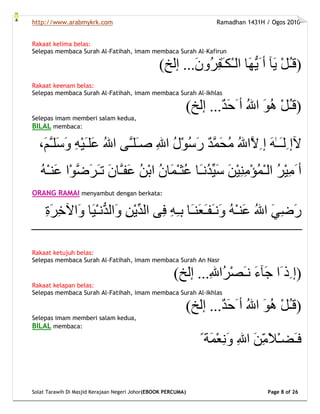 http://www.arabmykrk.com Ramadhan 1431H / Ogos 2010
Rakaat kelima belas:
Selepas membaca Surah Al-Fatihah, imam membaca Surah Al-Kafirun
(قُـلْ يَآ أَيُّهَا الْـكَـفِرُونَ... إلخ)
Rakaat keenam belas:
Selepas membaca Surah Al-Fatihah, imam membaca Surah Al-Ikhlas
(قُـلْ هُوَ اللهُ أَحَدٌ... إلخ)
Selepas imam memberi salam kedua,
BILAL membaca:
لآ إِلَــهَ إِلاَّ اللهُ مُحَمَّدٌ رَسُوْلُ اللهِ صَـلَّـى اللهُ عَلَـيْهِ وَسَلَّـمَ،
أَمِيْرُ الْـمُؤْمِنِيْنَ سَيِّدُنَـا عُثْـمَانُ ابْنُ عَفـَّانَ تَـرَضَّوْا عَنـْـهُ
ORANG RAMAI menyambut dengan berkata:
رَضِيَ اللهُ عَنـْـهُ وَنَـفَـعَنَـا بِـهِ فِى الدِّيْنِ وَالدُّنـْـيَا وَالآخِرَةِ
Rakaat ketujuh belas:
Selepas membaca Surah Al-Fatihah, imam membaca Surah An Nasr
(إِذَا جَآءَ نَـصْرُ اللهِ... إلخ)
Rakaat kelapan belas:
Selepas membaca Surah Al-Fatihah, imam membaca Surah Al-Ikhlas
(قُـلْ هُوَ اللهُ أَحَدٌ... إلخ)
Selepas imam memberi salam kedua,
BILAL membaca:
فَـضْـلاً مِّنَ اللهِ وَنِعْمَةً
Solat Tarawih Di Masjid Kerajaan Negeri Johor(EBOOK PERCUMA) Page 8 of 26